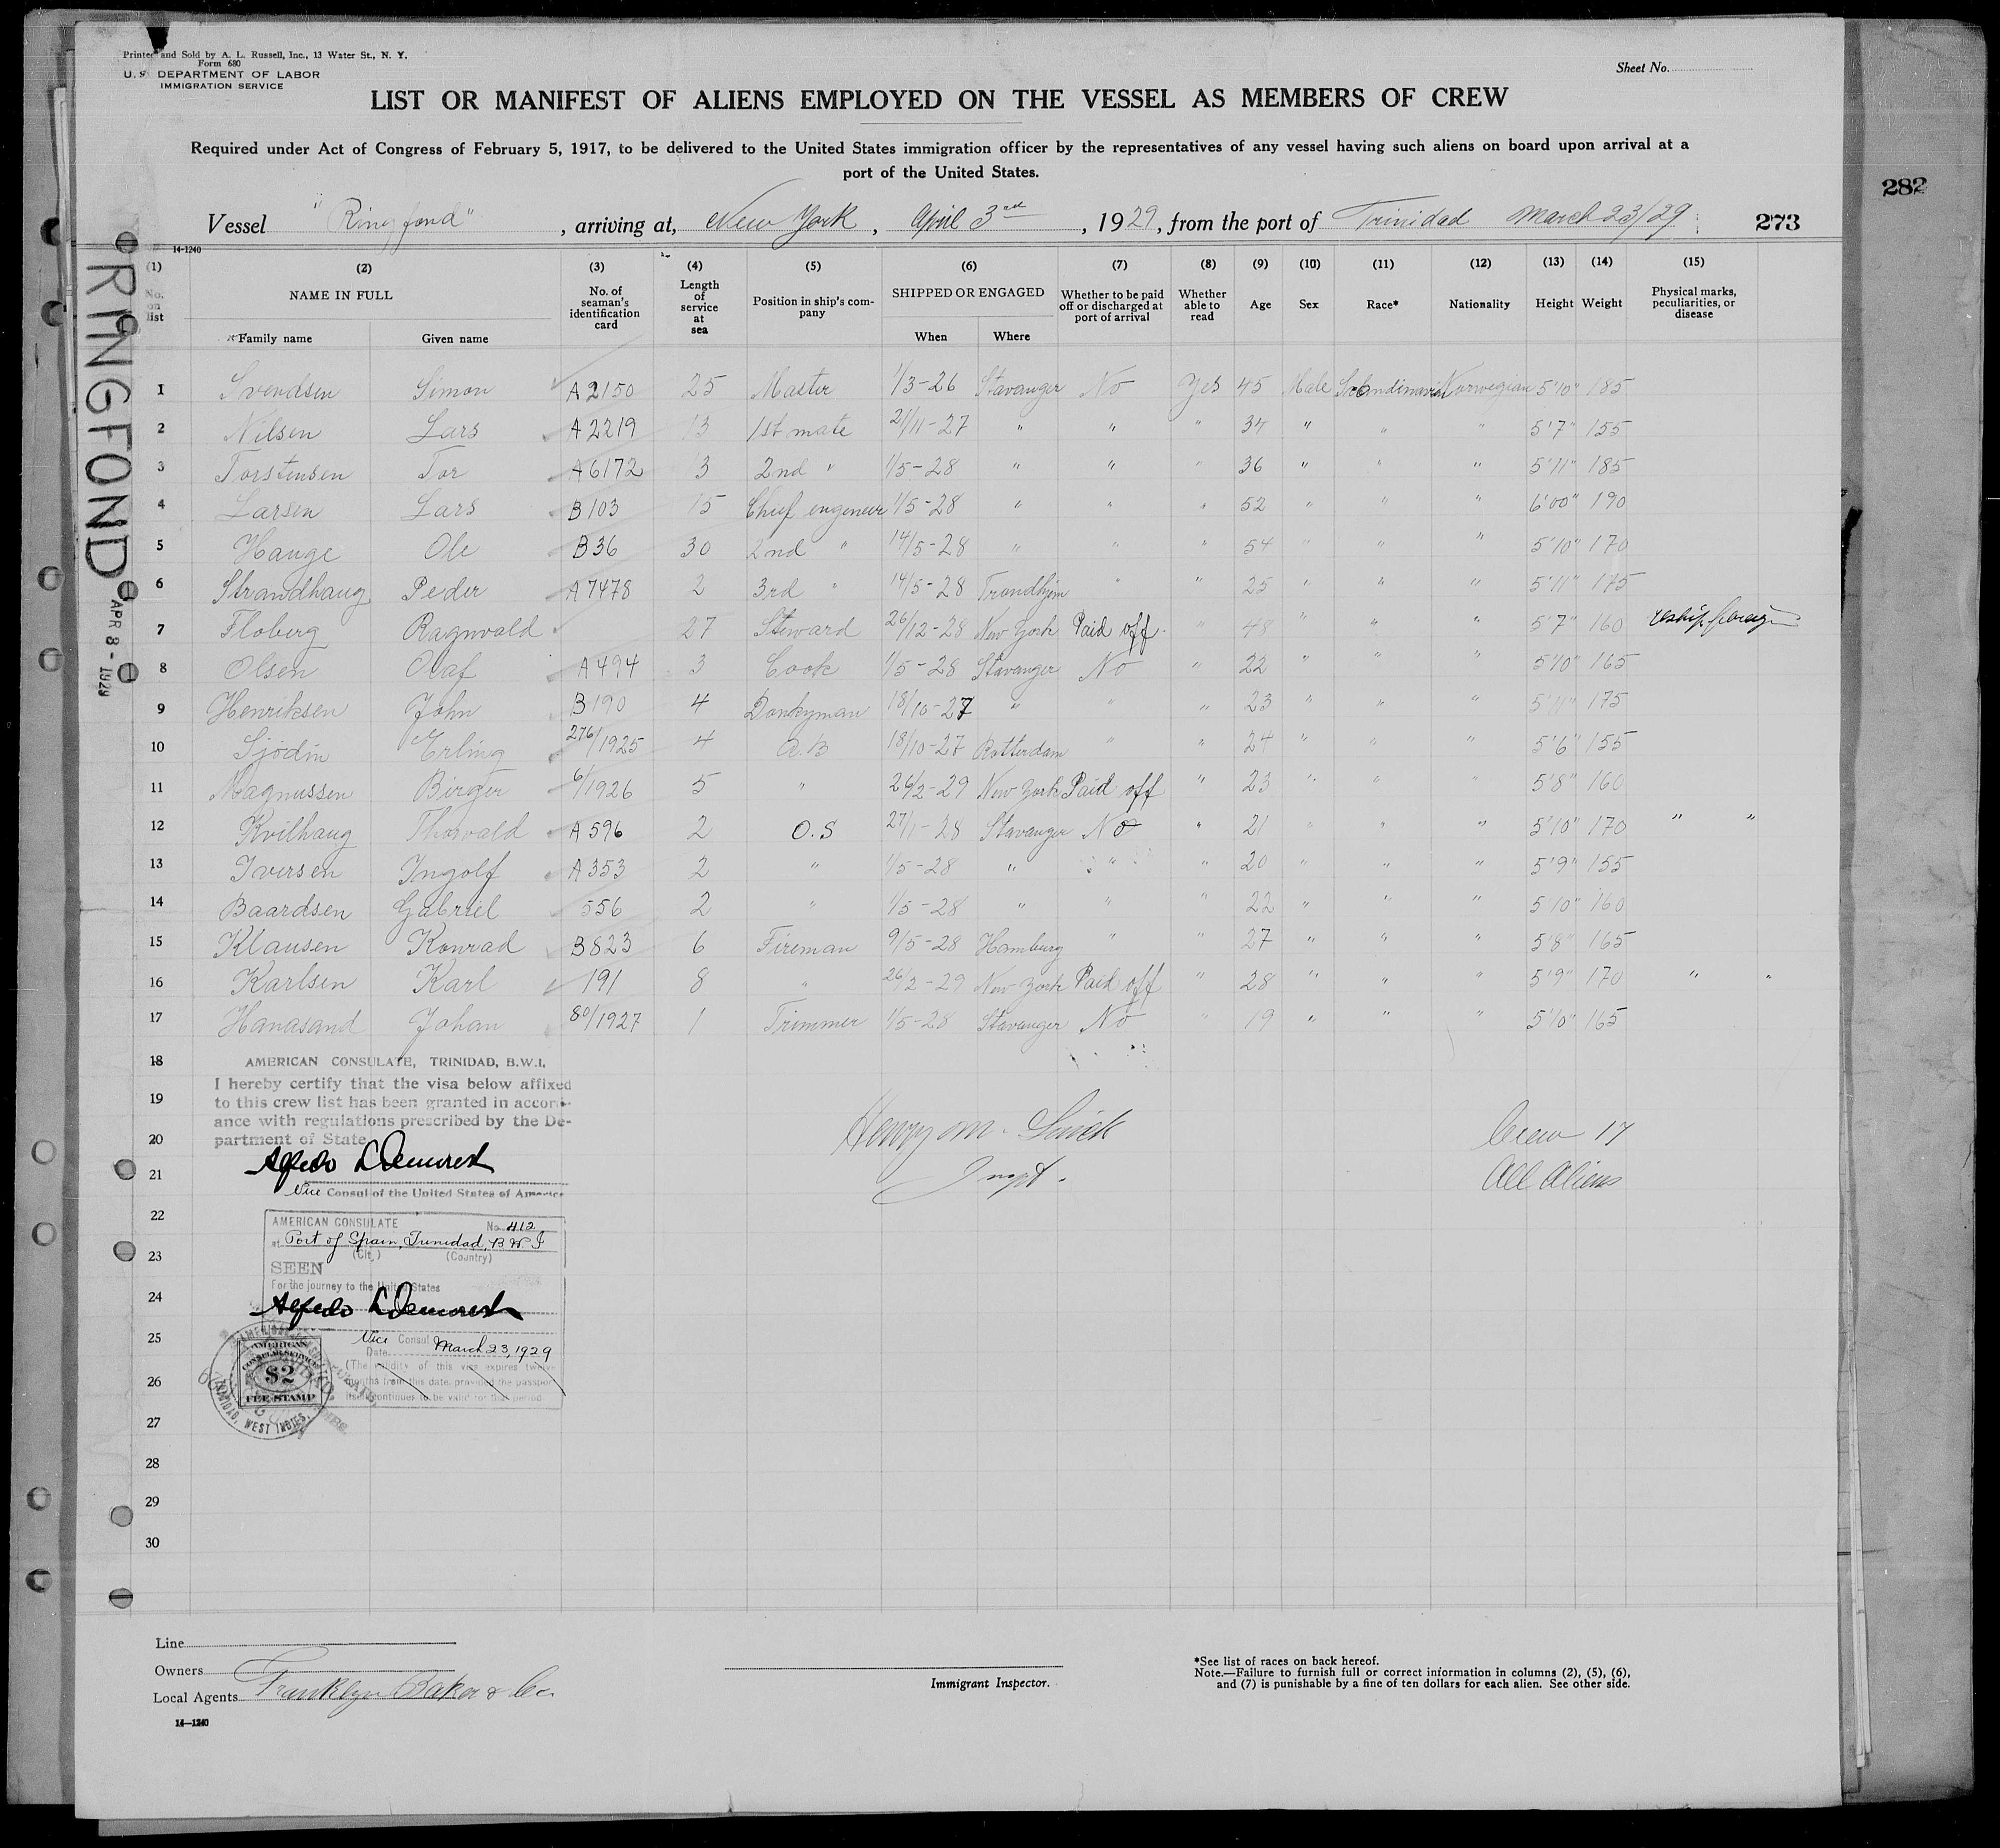 Printed and Sold by A. L. Russell, Inc., 13 Water St., N. Y.
Form 680
U. S. DEPARTMENT OF LABOR
IMMIGRATION SERVICE
Sheet No.
LIST OR MANIFEST OF ALIENS EMPLOYED ON THE VESSEL AS MEMBERS OF CREW
Required under Act of Congress of February 5, 1917, to be delivered to the United States immigration officer by the representatives of any vessel having such aliens on board upon arrival at a
port of the United States.
282
Vessel "Ringfond", arriving at, New York, April 3rd, 1929, from the port of Trinidad March 23/29 273
14-1240
(1) (2) (3) (4) (5) (6) (7) (8) (9) (10) (11) (12) (13) (14) (15)
No. on list NAME IN FULL No. of seaman's identification card Length of service at sea Position in ship's company SHIPPED OR ENGAGED Whether to be paid off or discharged at port of arrival Whether able to read Age Sex Race* Nationality Height Weight Physical marks, peculiarities, or disease
Family name Given name When Where
1 Svendsen Simon A2150 25 Master 1/3-26 Stavanger No Yes 45 Male Scandinavia Norwegian 5'10" 185
2 Nilsen Lars A2219 13 1st mate 21/11-27 " " " 34 " " " 5'7" 155
3 Torstensen Tor A6172 13 2nd " 1/5-28 " " " 36 " " " 5'11" 185
4 Larsen Lars B103 15 Chief engeneer 1/5-28 " " " 52 " " " 6'00" 190
5 Hauge Ole B36 30 2nd " 14/5-28 " " " 54 " " " 5'10" 170
6 Strandhaug Peder A7478 2 3rd " 14/5-28 Trondhjem " " 25 " " " 5'11" 175
7 Floberg Ragnvald 27 Steward 26/12-28 New York Paid off " 48 " " " 5'7" 160 reship foreign
8 Olsen Olaf A494 3 Cook 1/5-28 Stavanger No " 22 " " " 5'10" 165
9 Henriksen John B190 4 Donkyman 18/10-27 " " " 23 " " " 5'11" 175
10 Sjödin Erling 276/1925 4 A.B 18/10-27 Rotterdam " " 24 " " " 5'6" 155
11 Magnussen Birger 6/1926 5 " 26/2-29 New York Paid off " 23 " " " 5'8" 160
12 Kvilhaug Thorvald A596 2 O.S 27/1-28 Stavanger No " 21 " " " 5'10" 170 " "
13 Iversen Ingolf A353 2 " 1/5-28 " " " 20 " " " 5'9" 155
14 Baardsen Gabriel 556 2 " 1/5-28 " " " 22 " " " 5'10" 160
15 Klausen Konrad B823 6 Fireman 9/5-28 Hamburg " " 27 " " " 5'8" 165
16 Karlsen Karl 191 8 " 26/2-29 New York Paid off " 28 " " " 5'9" 170 " "
17 Hanasand Johan 80/1927 1 Trimmer 1/5-28 Stavanger No " 19 " " " 5'10" 165
18
19
20
21
22
23
24
25
26
27
28
29
30
AMERICAN CONSULATE, TRINIDAD, B.W.I.
I hereby certify that the visa below affixed
to this crew list has been granted in accord-
ance with regulations prescribed by the De-
partment of State
Alfredo L Demorest
Vice Consul of the United States of America
Henry M.
Inspt.
Crew 17
All Aliens
AMERICAN CONSULATE No. 412
at Port of Spain, Trinidad, B.W.I
(City) (Country)
SEEN
For the journey to the United States
Alfredo L Demorest
Vice Consul
Date March 23, 1929
(The validity of this visa expires twelve
months from this date, provided the passport
itself continues to be valid for that period
AMERICAN
CONSULAR SERVICE
$2
FEE STAMP
TRINIDAD, WEST INDIES
RINGFOND
APR 8 - 1929
Line
Owners
Local Agents Franklyn Baker & Co.
14-1240
Immigrant Inspector.
*See list of races on back hereof.
Note.—Failure to furnish full or correct information in columns (2), (5), (6),
and (7) is punishable by a fine of ten dollars for each alien. See other side.